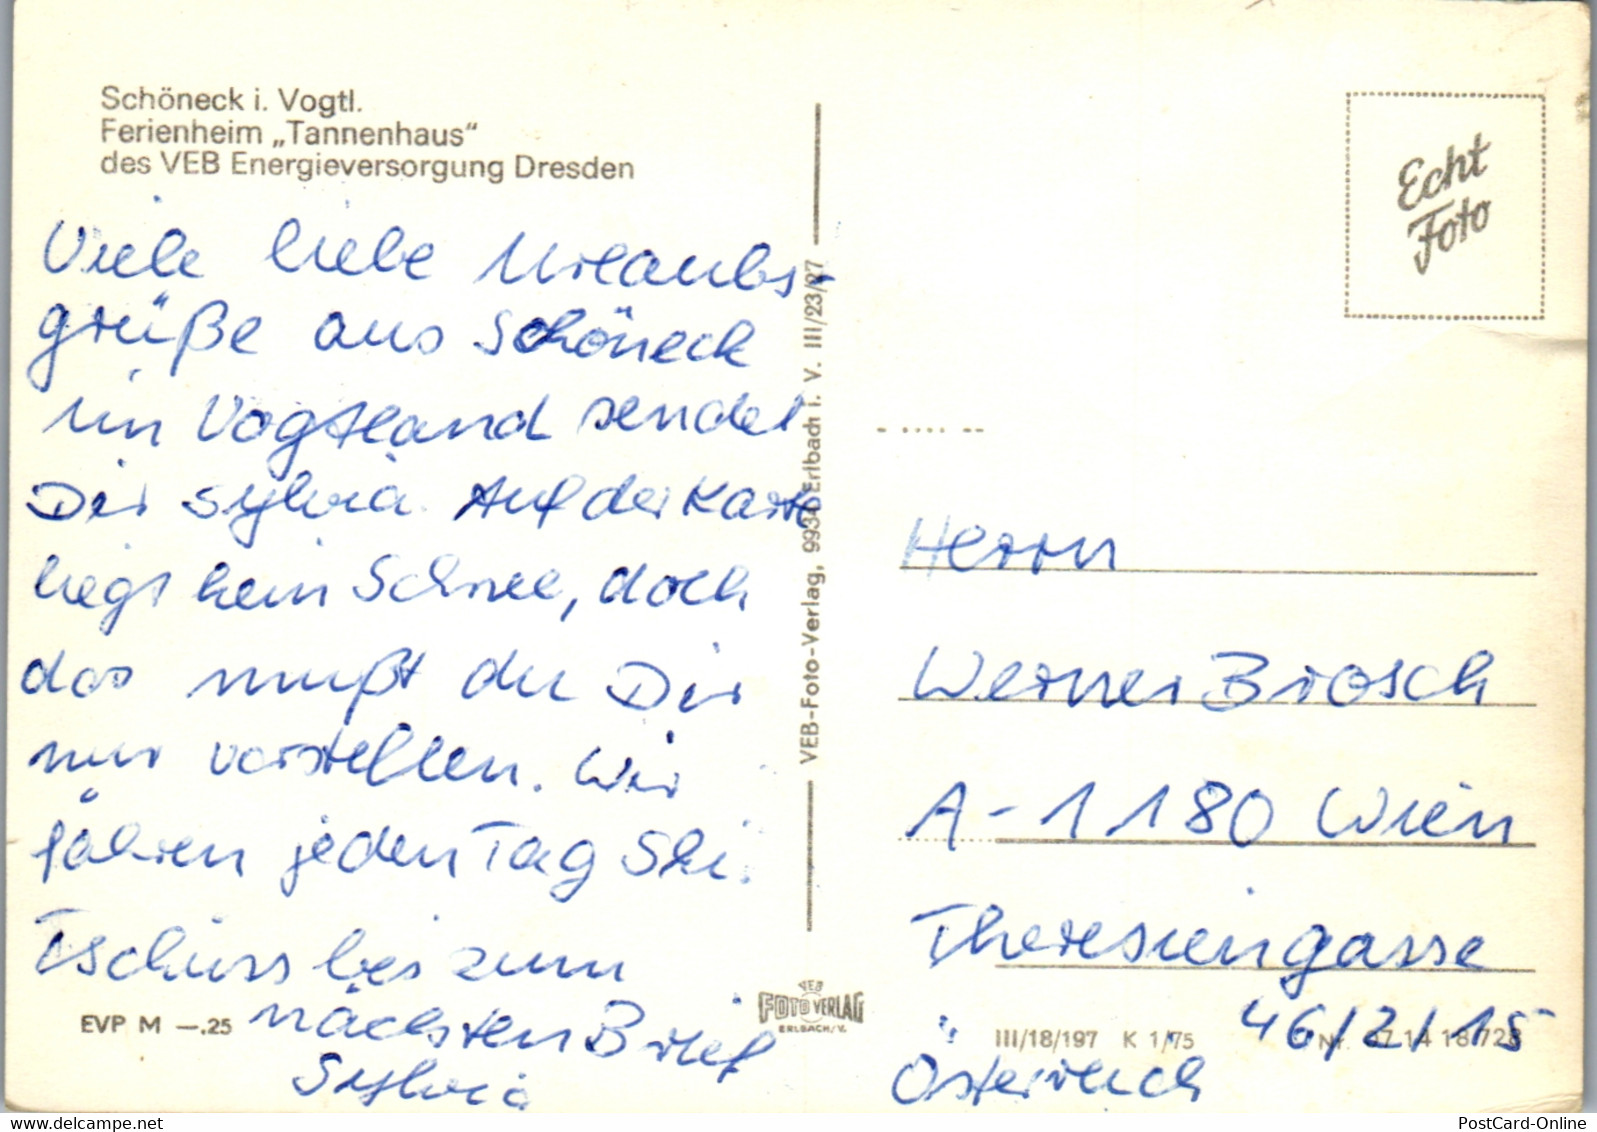 Schöneck i. Vogtl.
Ferienheim „Tannenhaus“
des VEB Energieversorgung Dresden
Viele liebe Urlaubs-
grüße aus Schöneck
im Vogtland sendet
Dir Sylvia. Auf der Karte
liegt kein Schnee, doch
das mußt du Dir
nur vorstellen. Wir
fahren jeden Tag Ski.
Tschüss bis zum
nächsten Brief
Sylvia
EVP M —.25
VEB-Foto-Verlag, 9934 Erlbach i. V. III/23/27
VEB
FOTO VERLAG
ERLBACH/V.
Echt
Foto
Herrn
Werner Brosch
A-1180 Wien
Theresiengasse
46/2/15
Österreich
III/18/197 K 1/75 Nr. 07 14 18/728
PostCard-Online